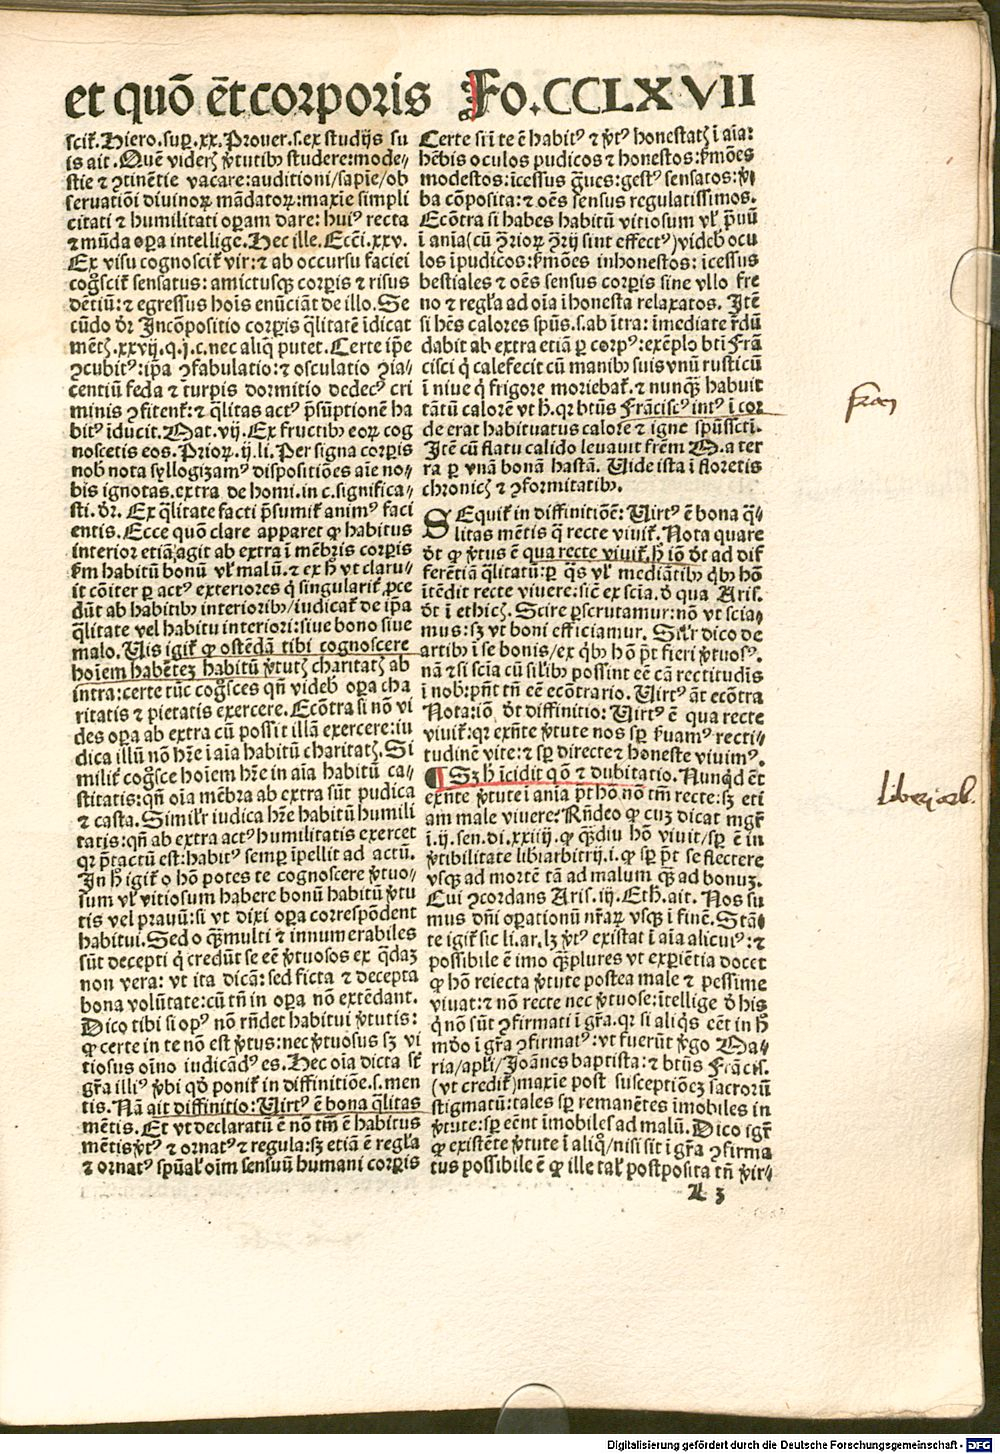 et quō ēt corporis Fo.CCLXVII
scit᷑. Hiero. suꝑ .xx. Prouer. s. ex studijs su
is ait. Quē viderꝫ ꝟtutibꝰ studere: mode-
stie ⁊ ꝯtinētie vacare: auditioni/sapīe/ob
seruatiōi diuinoꝝ mādatoꝝ: maxīe simpli
citati ⁊ humilitati oꝑam dare: huiꝰ recta
⁊ mūda oꝑa intellige. Hec ille. Ecc̄i. xxv.
Ex visu cognoscit᷑ vir: ⁊ ab occursu faciei
coḡscit᷑ sensatus: amictusqꝫ corꝑis ⁊ risus
dētiū: ⁊ egressus hoīs enūciāt de illo. Se
cūdo ꝺr̄ Incōpositio corꝑis q̄litatē īdicat
mētꝭ. xxvij. q. j. c. nec aliq̄ putet. Certe ip̄e
ꝯcubitꝰ: ip̄a ꝯfabulatio: ⁊ osculatio ꝯia-
centiū feda ⁊ īturpis dormitio dedecꝰ cri
minis ꝯfitent᷑: ⁊ q̄litas actꝰ p̄sūptionē ha
bitꝰ īducit. Mat. vij. Ex fructibꝰ eoꝝ cog
noscetis eos. Prioꝝ. ij. li. Per signa corꝑis
nob̄ nota syllogizamꝰ dispositiōes aīe no-
bis ignotas. extra de homi. in c. significa-
sti. ꝺr̄. Ex q̄litate facti p̄sumit᷑ animꝰ faci
entis. Ecce quō clare apparet ꝙ habitus
interior etiā agit ab extra ī mēbris corꝑis
ẜm habitū bonū vl᷑ malū. ⁊ ex h̄ vt claru-
it cōiter ꝑ actꝰ exteriores q̇ singularit᷑ ꝓce
dūt ab habitibꝰ interioribꝰ/iudicat᷑ de ip̄a
q̄litate vel habitu interiori: siue bono siue
malo. Uis igit᷑ ꝙ ostēdā tibi cognoscere
hoīem habētez habitū ꝟtutꝭ charitatꝭ ab
intra: certe tūc coḡsces qn̄ videb̄ oꝑa cha
ritatis ⁊ pietatis exercere. Ecōtra si nō vi
des oꝑa ab extra cū possit illā exercere: iu
dica illū nō hr̄e ī aīa habitū charitatꝭ. Si
milit᷑ coḡsce hoīem hr̄e in aīa habitū ca-
stitatis: qn̄ oīa mēbra ab extra sūt pudica
⁊ casta. Simil᷑r iudica hr̄e habitū humili
tatis: qn̄ ab extra actꝰ humilitatis exercet
qr p̄tactū est: habitꝰ semꝑ īpellit ad actū.
In h̄ igit᷑ o hō potes te cognoscere ꝟtuo-
sum vl᷑ vitiosum habere bonū habitū ꝟtu
tis vel prauū: si vt dixi oꝑa correspōdent
habitui. Sed o qꝫ̄ multi ⁊ innumerabiles
sūt decepti q̇ credūt se eē ꝟtuosos ex q̄daꝫ
non vera: vt ita dicā: sed ficta ⁊ decepta
bona volūtate: cū tn̄ in oꝑa nō extēdant.
Dico tibi si opꝰ nō rn̄det habitui ꝟtutis:
ꝙ certe in te nō est ꝟtus: nec ꝟtuosus sꝫ vi
tiosus oīno iudicādꝰ es. Hec oīa dicta st̄
gr̄a illiꝰ ꝟbi qd̓ ponit᷑ in diffinitiōe. s. men
tis. Nā ait diffinitio: Uirtꝰ ē bona q̄litas
mētis. Et vt declaratū ē nō tm̄ ē habitus
mētis ꝟtꝰ ⁊ ornatꝰ ⁊ regula: sꝫ etiā ē regl̓a
⁊ ornatꝰ spūal᷑ oīm sensuū humani corꝑis
Certe sī ī te ē habitꝰ ⁊ ꝟtꝰ honestatꝭ ī aīa:
hēbis oculos pudicos ⁊ honestos: ẜmōes
modestos: īcessus g̈ues: gestꝰ sensatos: ꝟ
ba cōposita: ⁊ oēs sensus regulatissimos.
Ecōtra si habes habitū vitiosum vl᷑ p̄uū
ī anīa (cū ꝯrioꝝ ꝯrij sint effectꝰ) videb̄ ocu
los īpudicos: ẜmōes inhonestos: īcessus
bestiales ⁊ oēs sensus corꝑis sine vllo fre
no ⁊ regl̓a ad oīa īhonesta relaxatos. Itē
si hēs calores spūs. s. ab ītra: īmediate r̄dū
dabit ab extra etiā ꝑ corpꝰ: exēplo bt̄i Frā
cisci q̇ calefecit cū manibꝰ suis vnū rusticū
ī niue q̇ frigore moriebat᷑. ⁊ nunqꝫ̄ habuit
tātū calorē vt h̄. qr bt̄us Frāciscꝰ intꝰ ī cor
de erat habituatus calore ⁊ igne spūssctī.
Itē cū flatu calido leuauit fr̄em M. a ter
ra ꝑ vnā bonā hastā. Uide ista ī floretis
chronicꝭ ⁊ ꝯformitatibꝰ.
SEquit᷑ in diffinitiōe: Uirtꝰ ē bona q̄-
litas mētis q̄ recte viuit᷑. Nota quare
ꝺt ꝙ ꝟtus ē qua recte viuit᷑. h̄ iō ꝺt ad dif
ferētiā q̄litatū: ꝑ q̄s vl᷑ mediātibꝰ qbꝰ hō
ītēdit recte viuere: sic̄ ē ex scīa. ꝺ qua Aris.
ꝺt ī ethicꝭ. Scire ꝑscrutamur: nō vt scia-
mus: sꝫ vt boni efficiamur. Sil᷑r dico de
artibꝰ ī se bonis/ex qbꝰ hō pt̄ fieri ꝟtuosꝰ.
nā ⁊ si scīa cū sil᷑ibꝰ possint eē cā rectitudīs
ī nob̄: pn̄t tn̄ eē ecōtrario. Uirtꝰ āt ecōtra
Nota: iō ꝺt diffinitio: Uirtꝰ ē qua recte
viuit᷑: qr exn̄te ꝟtute nos sꝑ ẜuamꝰ recti-
tudinē vite: ⁊ sꝑ directe ⁊ honeste viuimꝰ.
¶ Sꝫ h̄ īcidit qō ⁊ dubitatio. Nunqd ēt
exn̄te ꝟtute ī anīa pt̄ hō nō tm̄ recte: sꝫ etī
am male viuere? Rn̄deo ꝙ cuꝫ dicat mgr̄
ī. ij. sen. di. xxiiij. ꝙ qꝫ̄diu hō viuit/sꝑ ē in
ꝟtibilitate lib̄i arbitrij. i. ꝙ sꝑ pt̄ se flectere
vsqꝫ ad mortē tā ad malum qꝫ̄ ad bonuꝫ.
Cui ꝯcordans Aris. iij. Eth. ait. Nos su
mus dn̄i oꝑationū nr̄aꝝ vsqꝫ ī finē. Stā-
te igit᷑ sic li. ar. lꝫ ꝟtꝰ existat ī aīa alicuiꝰ: ⁊
possibile ē īmo qꝫ̄plures vt exꝑiētia docet
ꝙ hō reiecta ꝟtute postea male ⁊ pessime
viuat: ⁊ nō recte nec ꝟtuose: ītellige ꝺ his
q̇ nō sūt ꝯfirmati ī gr̄a. qr si aliq̇s eēt in h̄
mō ī gr̄a ꝯfirmatꝰ: vt fuerūt ꝟgo Ma-
ria/apl̓i/Joānes baptista: ⁊ bt̄us Frācis.
(vt credit᷑) maxīe post susceptiōeꝫ sacrorū
stigmatū: tales sꝑ remanētes īmobiles in
ꝟtute: sꝑ eēnt īmobiles ad malū. Dico igr̄
ꝙ existēte ꝟtute ī aliq̇/nisi sit ī gr̄a ꝯfirma
tus possibile ē ꝙ ille tal᷑ postposita tn̄ ꝟir-
Fran
liber arb.
Digitalisierung gefördert durch die Deutsche Forschungsgemeinschaft - DFG